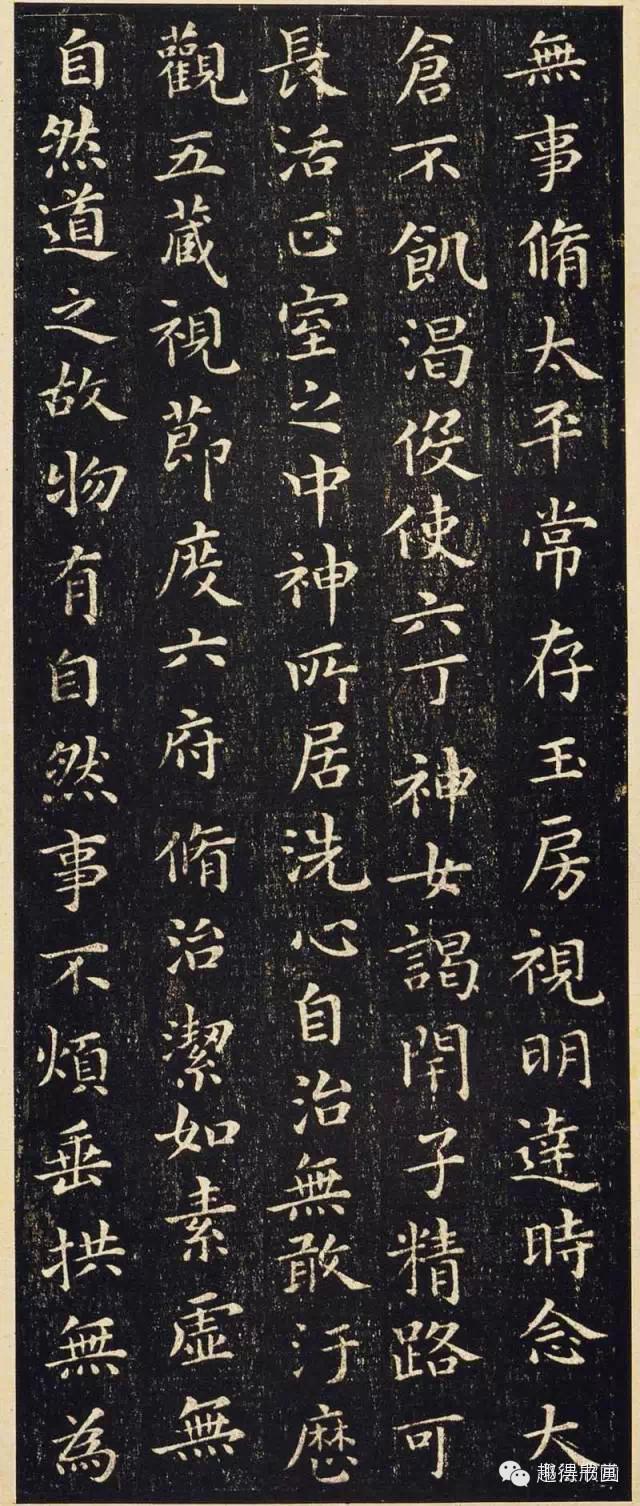 無事脩太平常存玉房視明達時念大
倉不飢渴伇使六丁神女謁閇子精路可
長活正室之中神所居洗心自治無敢汙歷
觀五藏視莭度六府脩治潔如素虛無
自然道之故物有自然事不煩垂拱無為